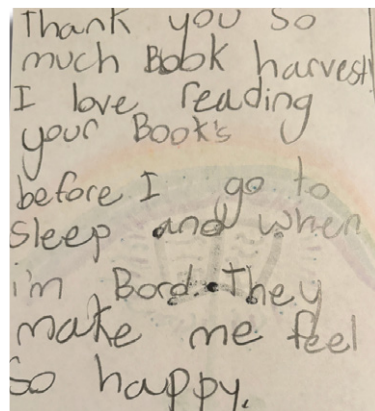 Thank you so
much Book harvest!
I love reading
your Book's
before I go to
Sleep and when
i'm Bord. They
make me feel
So happy.